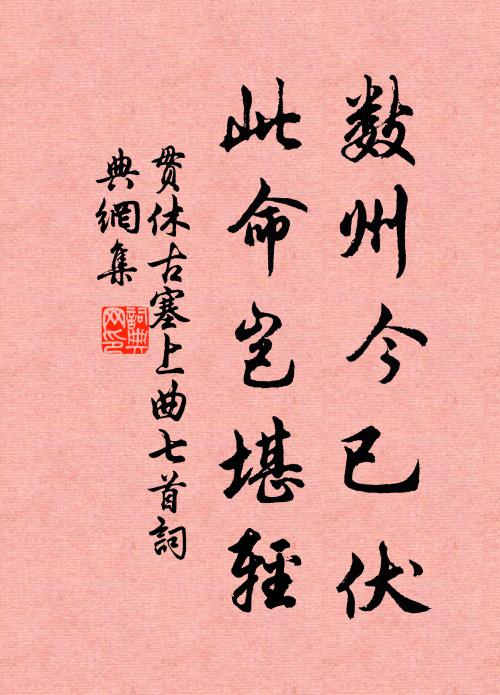 数州今已伏
此命岂堪輕
贯休古塞上曲七首詞
典網集
詞典网印